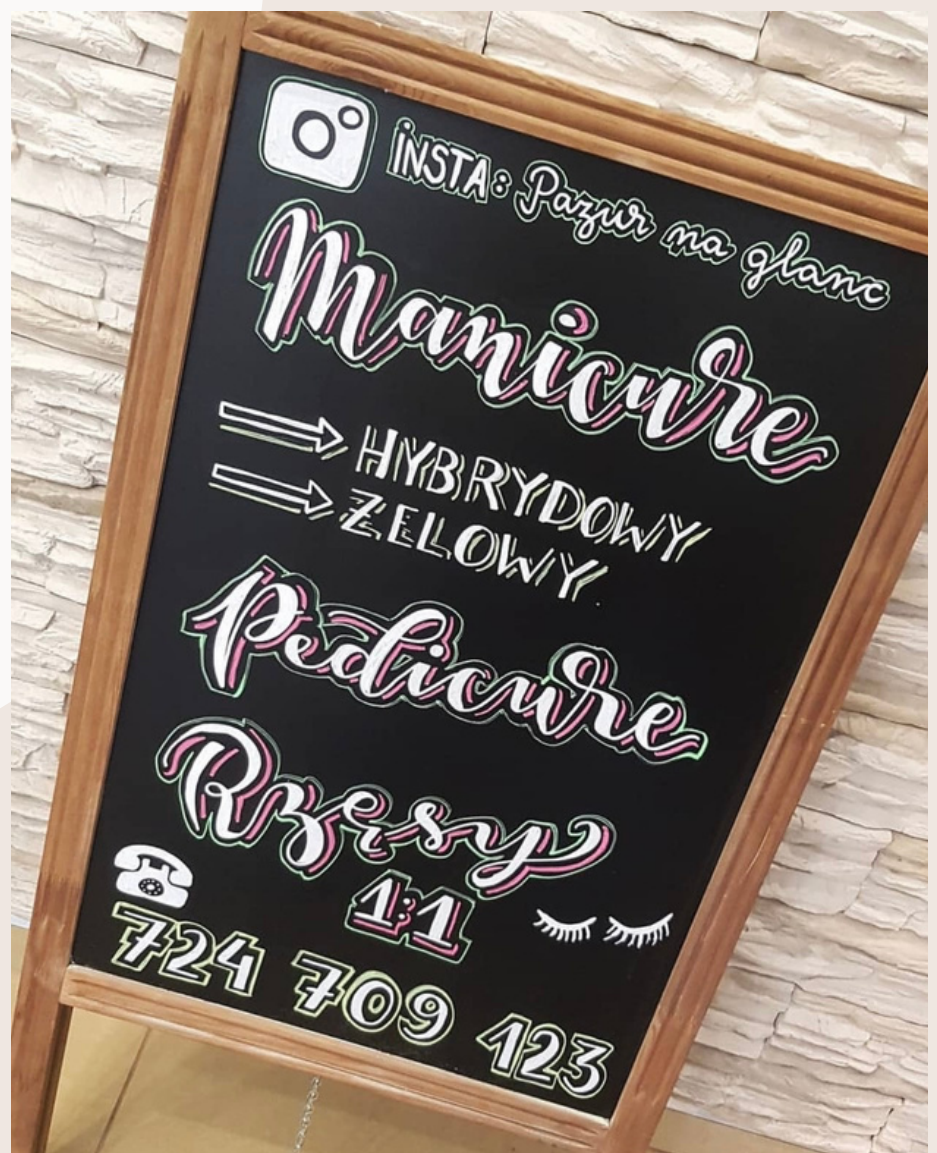 İNSTA: Pazur na glanc
Manicure
HYBRYDOWY
ŻELOWY
Pedicure
Rzęsy
1:1
724 709 123